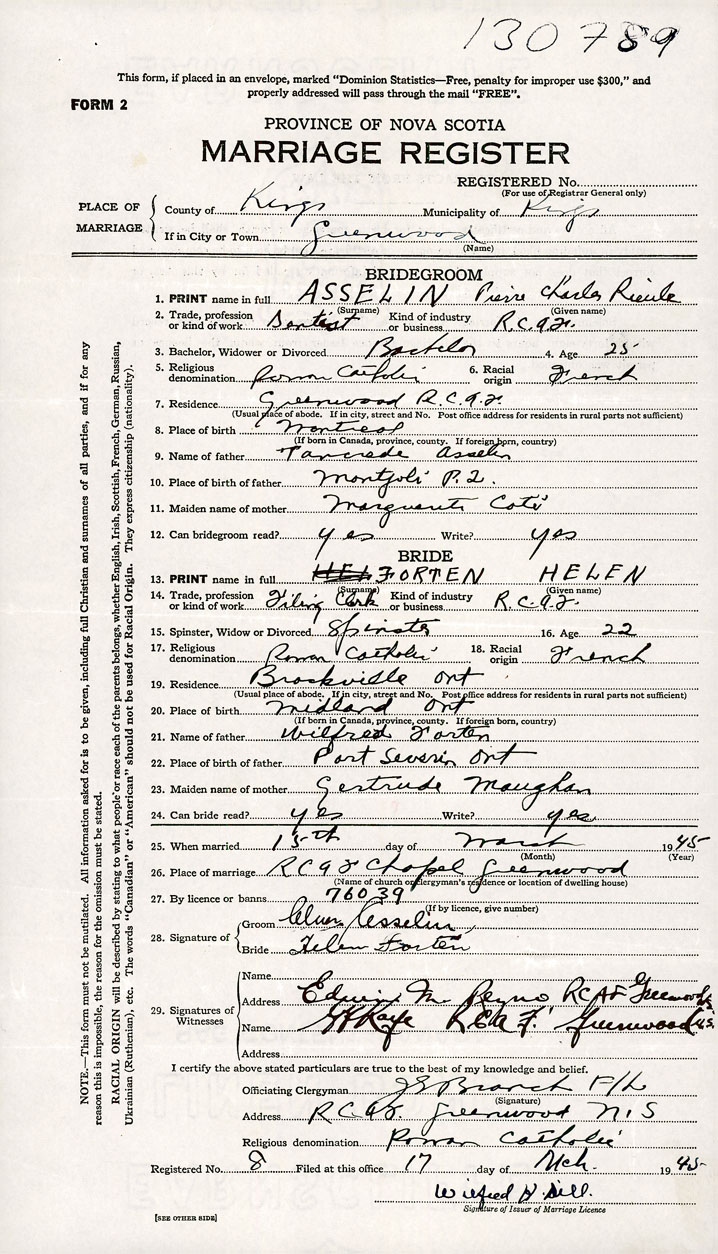 130789
This form, if placed in an envelope, marked "Dominion Statistics—Free, penalty for improper use $300," and
properly addressed will pass through the mail "FREE".
FORM 2
PROVINCE OF NOVA SCOTIA
MARRIAGE REGISTER
REGISTERED No.
(For use of Registrar General only)
PLACE OF MARRIAGE
County of Kings Municipality of Kings
If in City or Town Greenwood
(Name)
BRIDEGROOM
1. PRINT name in full ASSELIN Pierre Charles
(Surname) (Given name)
2. Trade, profession or kind of work Dentist Kind of industry or business R.C.A.F.
3. Bachelor, Widower or Divorced Bachelor 4. Age 25
5. Religious denomination Roman Catholic 6. Racial origin French
7. Residence Greenwood R.C.A.F.
(Usual place of abode. If in city, street and No. Post office address for residents in rural parts not sufficient)
8. Place of birth Montreal
(If born in Canada, province, county. If foreign born, country)
9. Name of father Tancrede Asselin
10. Place of birth of father Montjoli P.Q.
11. Maiden name of mother Marguerite Coté
12. Can bridegroom read? yes Write? yes
BRIDE
13. PRINT name in full HEL FORTEN HELEN
(Surname) (Given name)
14. Trade, profession or kind of work Filing Clerk Kind of industry or business R.C.A.F.
15. Spinster, Widow or Divorced Spinster 16. Age 22
17. Religious denomination Roman Catholic 18. Racial origin French
19. Residence Brockville Ont
(Usual place of abode. If in city, street and No. Post office address for residents in rural parts not sufficient)
20. Place of birth Midland Ont
(If born in Canada, province, county. If foreign born, country)
21. Name of father Wilfred Forten
22. Place of birth of father Port Severin Ont
23. Maiden name of mother Gertrude Maughan
24. Can bride read? yes Write? yes
25. When married 15th day of March 1945
(Month) (Year)
26. Place of marriage RCAF Chapel Greenwood
(Name of church or clergyman's residence or location of dwelling house)
27. By licence or banns 76039
(If by licence, give number)
28. Signature of
Groom Asselin
Bride Helen Forten
29. Signatures of Witnesses
Name
Address Edwin M. Reyno RCAF Greenwood N.S.
Name Kaye RCAF. Greenwood N.S.
Address
I certify the above stated particulars are true to the best of my knowledge and belief.
Officiating Clergyman Branch F/L
(Signature)
Address RCAF. Greenwood N.S
Religious denomination Roman Catholic
Registered No. 8 Filed at this office 17 day of Mch. 1945
Wilfred H. Dill.
Signature of Issuer of Marriage Licence
[SEE OTHER SIDE]
NOTE.—This form must not be mutilated. All information asked for is to be given, including full Christian and surnames of all parties, and if for any
reason this is impossible, the reason for the omission must be stated.
RACIAL ORIGIN will be described by stating to what people or race each of the parents belongs, whether English, Irish, Scottish, French, German, Russian,
Ukrainian (Ruthenian), etc. The words "Canadian" or "American" should not be used for Racial Origin. They express citizenship (nationality).